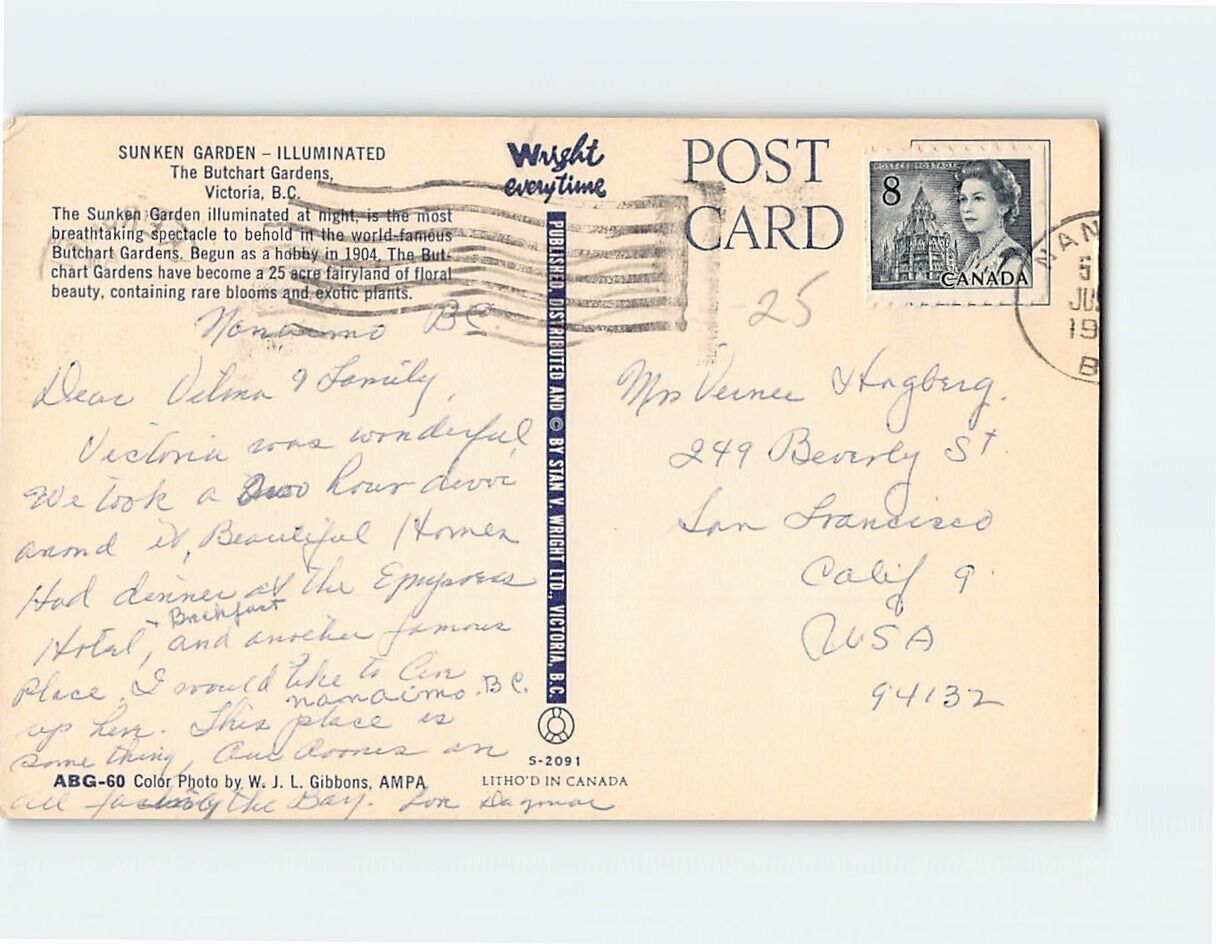 SUNKEN GARDEN – ILLUMINATED
The Butchart Gardens,
Victoria, B.C.
The Sunken Garden illuminated at night, is the most
breathtaking spectacle to behold in the world-famous
Butchart Gardens. Begun as a hobby in 1904, The But-
chart Gardens have become a 25 acre fairyland of floral
beauty, containing rare blooms and exotic plants.
Nanaimo BC.
Dear Velma & Family,
Victoria was wonderful,
We took a two hour drive
arond it, Beautiful Homes
Had dinner at the Empress
+ Breakfast
Hotel, and another famous
Place, I would like to live
nanaimo. B C.
up here. This place is
some thing, Our rooms are
all facing the Bay. Dagmar
ABG-60 Color Photo by W. J. L. Gibbons, AMPA
Wright
everytime
PUBLISHED, DISTRIBUTED AND © BY STAN V. WRIGHT LTD., VICTORIA, B.C.
S-2091
LITHO'D IN CANADA
POST
CARD
POSTES POSTAGE
8
CANADA
NAN
JU
19
B
25
Mrs Hagberg.
249 Beverly St.
San Francisco
Calif 9.
USA
94132